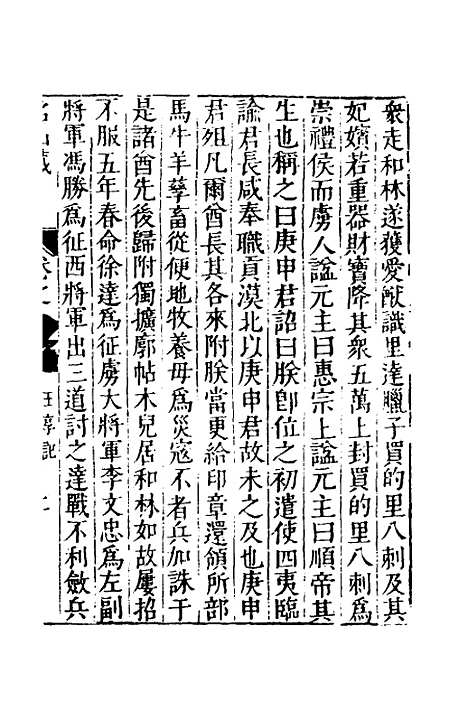 衆走和林遂獲愛猷識里達臘子買的里八剌及其
妃嬪若重器財寶降其衆五萬上封買的里八剌爲
崇禮侯而虜人諡元主曰惠宗上諡元主曰順帝其
生也稱之曰庚申君詔曰朕卽位之初遣使四夷臨
諭君長咸奉職貢漠北以庚申君故未之及也庚申
君殂凡爾酋長其各來附朕當更給印章還領所部
馬牛羊孳畜從便地牧養毋爲災寇不者兵加誅于
是諸酋先後歸附獨擴廓帖木兒居和林如故屢招
不服五年春命徐達爲征虜大將軍李文忠爲左副
將軍馮勝爲征西將軍出三道討之達戰不利斂兵
名山藏